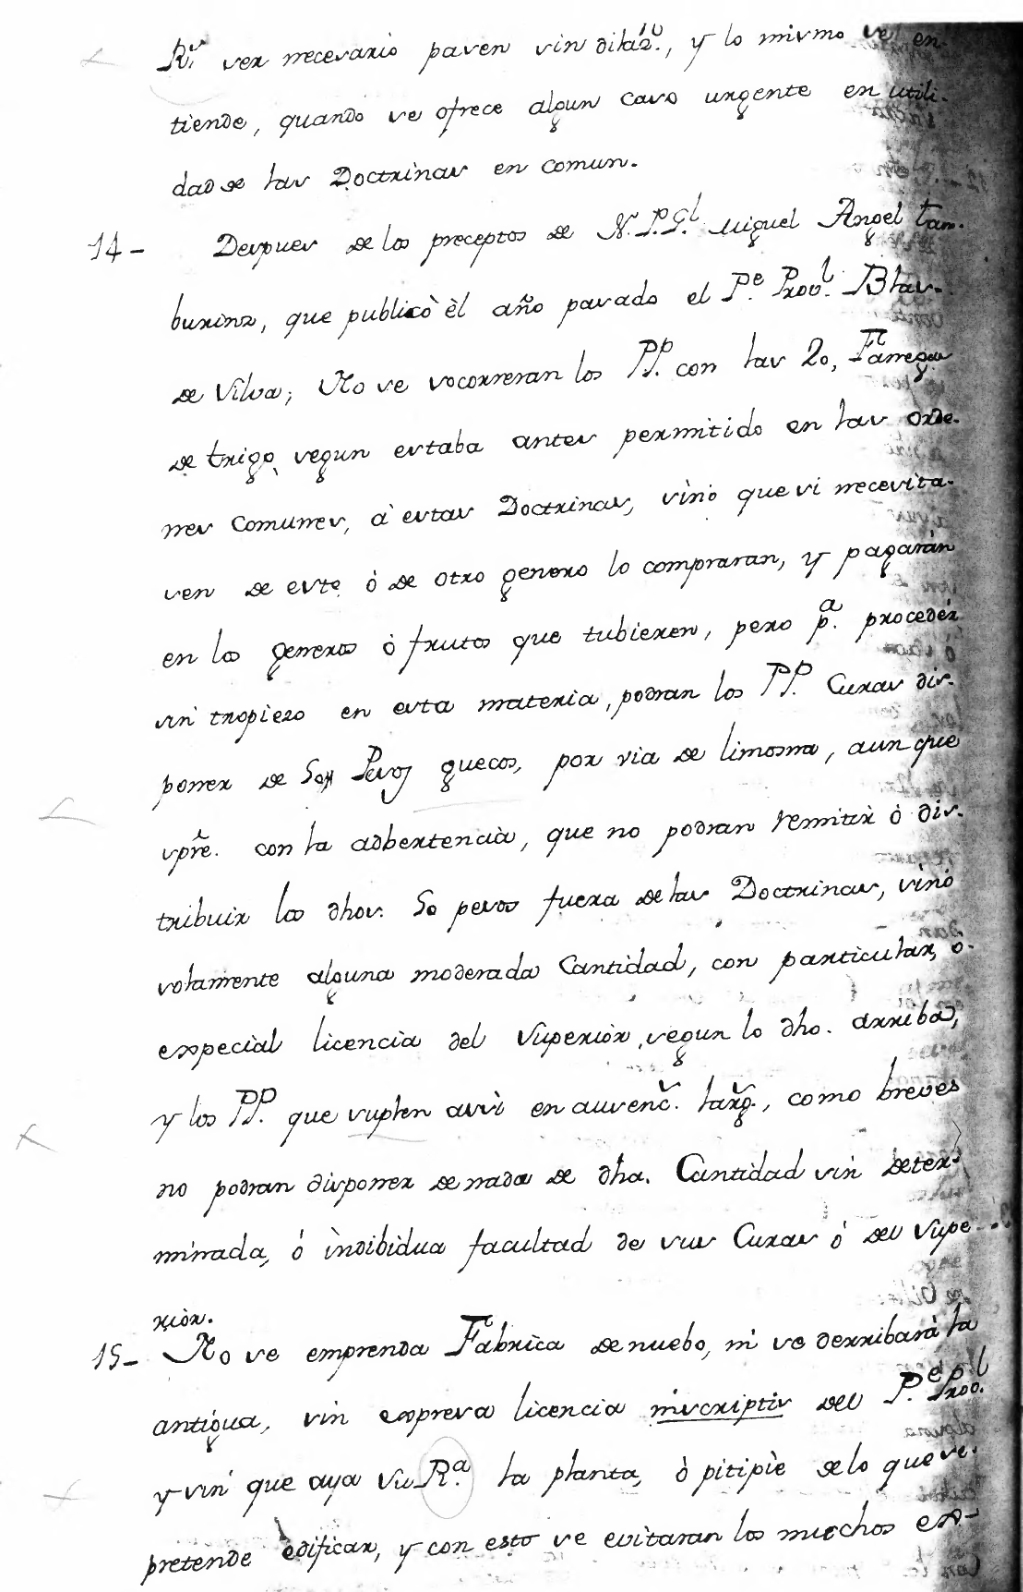 R.ˢ ser necesario pasen sin dilaz.ⁿ, y lo mismo se en-
tiende, quando se ofrece algun caso urgente en utili-
dad de las Doctrinas en comun.
14- Despues de los preceptos de N. P. G.ˡ Miguel Angel Tam-
burino, que publicò èl año pasado el P.ᵉ Prov.ˡ Blas
de Silva; No se socorreran los PP. con las 20, Fanegas
de trigo segun estaba antes permitido en las orde-
nes Comunes, à estas Doctrinas, sino que si necesita-
sen de este ò de otro genero lo compraran, y pagaràn
en los generos ò frutos que tubieren, pero p.ᵃ procedèr
sin tropiezo en esta materia, podran los PP. Curas dis-
poner de 50 Pesos guecos, por via de limosna, aunque
spre. con la adbertencià, que no podran remitir ò dis-
tribuir los dhos. 50 pesos fuera de las Doctrinas, sinò
solamente alguna moderada Cantidad, con particular, o
expecial licencia del Superiòr, segun lo dho. arriba,
y los PP. que suplen assi en ausenc.ˢ larg.ˢ, como breves
no podran disponer de nada de dha. Cantidad sin deter-
minada, ò indibidua facultad de sus Curas ò del Supe-
riòr.
15- No se emprenda Fàbrica de nuebo, ni se derribarà la
antigua, sin expresa licencia inscriptis del P.ᵉ Prov.ˡ
y sin que aya Su R.ᵃ la planta, ò pitipiè de lo que se
pretende edificar, y con esto se evitaran los muchos ex-